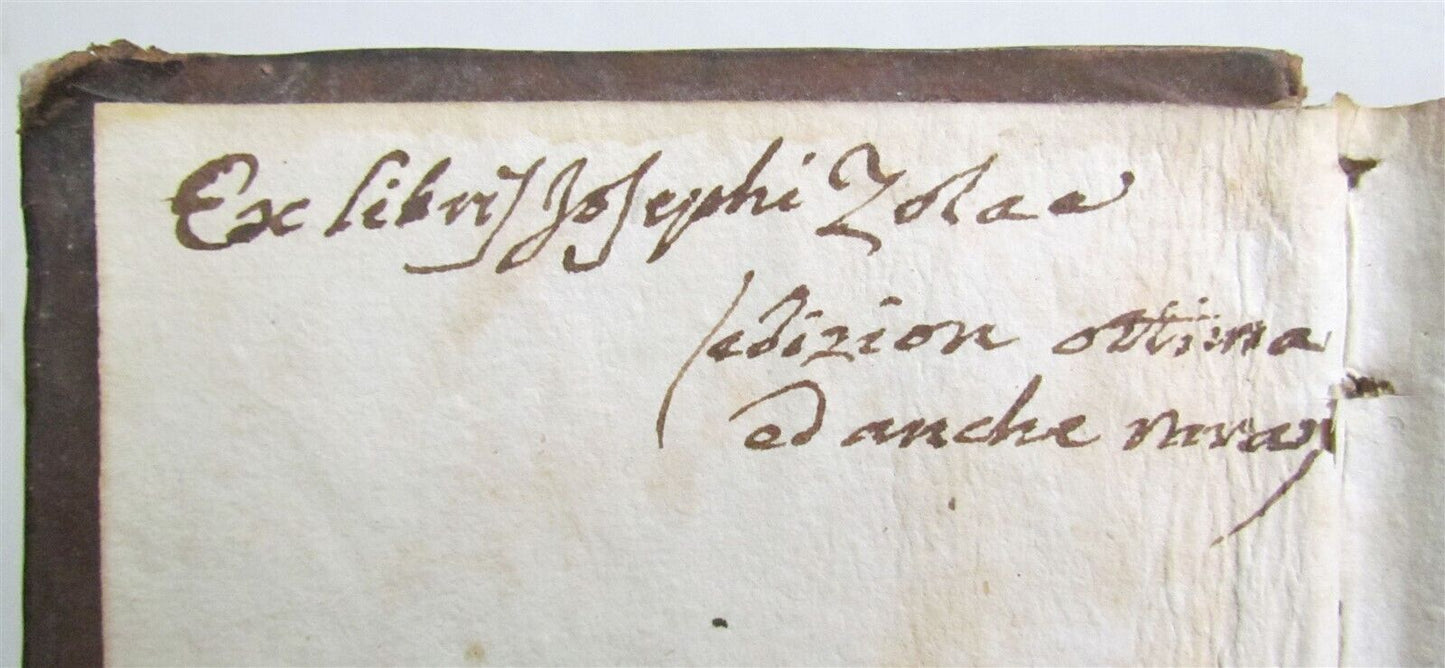 Ex libris Josephi Zolae
(edizion ottima
ed anche rara)